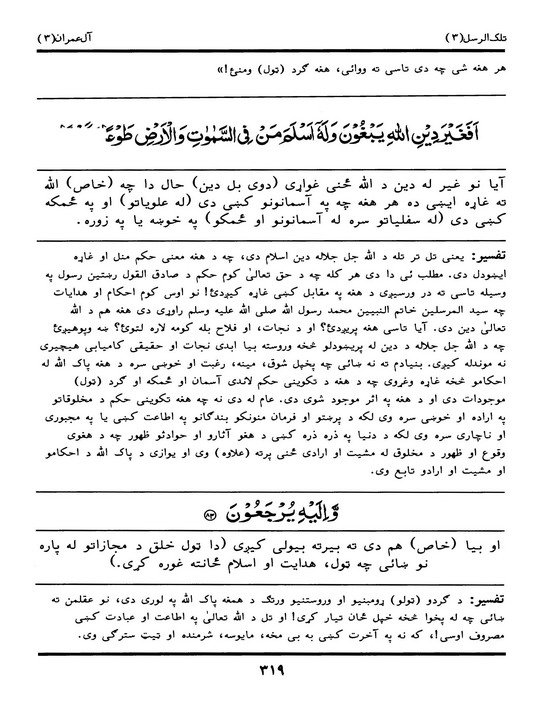 تلك الرسل(٣) آل عمران(٣)
هر هغه شی چه دی تاسی ته ووائی، هغه گرد (ټول) ومنئ!»
اَفَغَيْرَ دِيْنِ اللهِ يَبْغُوْنَ وَلَهٗٓ اَسْلَمَ مَنْ فِى السَّمٰوٰتِ وَالْاَرْضِ طَوْعًا
آیا نو غیر له دین د الله ځنی غواړی (دوی بل دین) حال دا چه (خاص) الله
ته غاړه ایښی ده هر هغه چه په آسمانونو کښی دی (له علویاتو) او په ځمکه
کښی دی (له سفلیاتو سره له آسمانونو او ځمکو) په خوښه یا په زوره.
تفسیر: یعنی تل تر تله د الله جل جلاله دین اسلام دی، چه د هغه معنی حکم منل او غاړه
ایښودل دی. مطلب ئی دا دی هر کله چه د حق تعالیٰ کوم حکم د صادق القول رښتین رسول په
وسیله تاسی ته در ورسیږی د هغه په مقابل کښی غاړه کیږدئ! نو اوس کوم احکام او هدایات
چه سید المرسلین خاتم النبیین محمد رسول الله صلی الله علیه وسلم راوړی دی هغه هم د الله
تعالیٰ دین دی. آیا تاسی هغه پریږدئ؟ او د نجات، او فلاح بله کومه لاره لټوئ؟ ښه وپوهیږئ
چه د الله جل جلاله د دین له پریښودلو څخه وروسته بیا ابدی نجات او حقیقی کامیابی هیچیری
نه موندله کیږی. بنیادم ته ښائی چه پخپل شوق، مینه، رغبت او خوښی سره د هغه پاک الله له
احکامو څخه غاړه ونغړوی چه د هغه د تکوینی حکم لاندی آسمان او ځمکه او گرد (ټول)
موجودات دی او د هغه په اثر موجود شوی دی. عام له دی نه چه هغه تکوینی حکم د مخلوقاتو
په اراده او خوښی سره وی لکه د پرښتو او فرمان منونکو بندگانو په اطاعت کښی یا په مجبوری
او ناچاری سره وی لکه د دنیا په ذره ذره کښی د هغو آثارو او حوادثو ظهور چه د هغوی
وقوع او ظهور د مخلوق له مشیت او ارادی ځنی پرته (علاوه) وی او یوازی د پاک الله د احکامو
او مشیت او ارادو تابع وی.
وَّاِلَيْهِ يُرْجَعُوْنَ ﴿٨٣﴾
او بیا (خاص) هم دی ته بیرته بیولی کیږی (دا ټول خلق د مجازاتو له پاره
نو ښائی چه ټول، هدایت او اسلام ځانته غوره کړی.)
تفسیر: د گردو (ټولو) ړومبنیو او وروستنیو ورتگ د همغه پاک الله په لوری دی، نو عقلمن ته
ښائی چه له پخوا څخه خپل ځان تیار کړی! او تل د الله تعالیٰ په اطاعت او عبادت کښی
مصروف اوسی!، که نه په آخرت کښی به بی مخه، مایوسه، شرمنده او ټیټ سترگی وی.
٣١٩